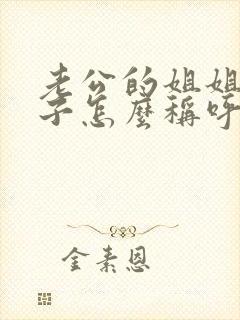 老公的姐姐
子怎麼稱呼
金素恩